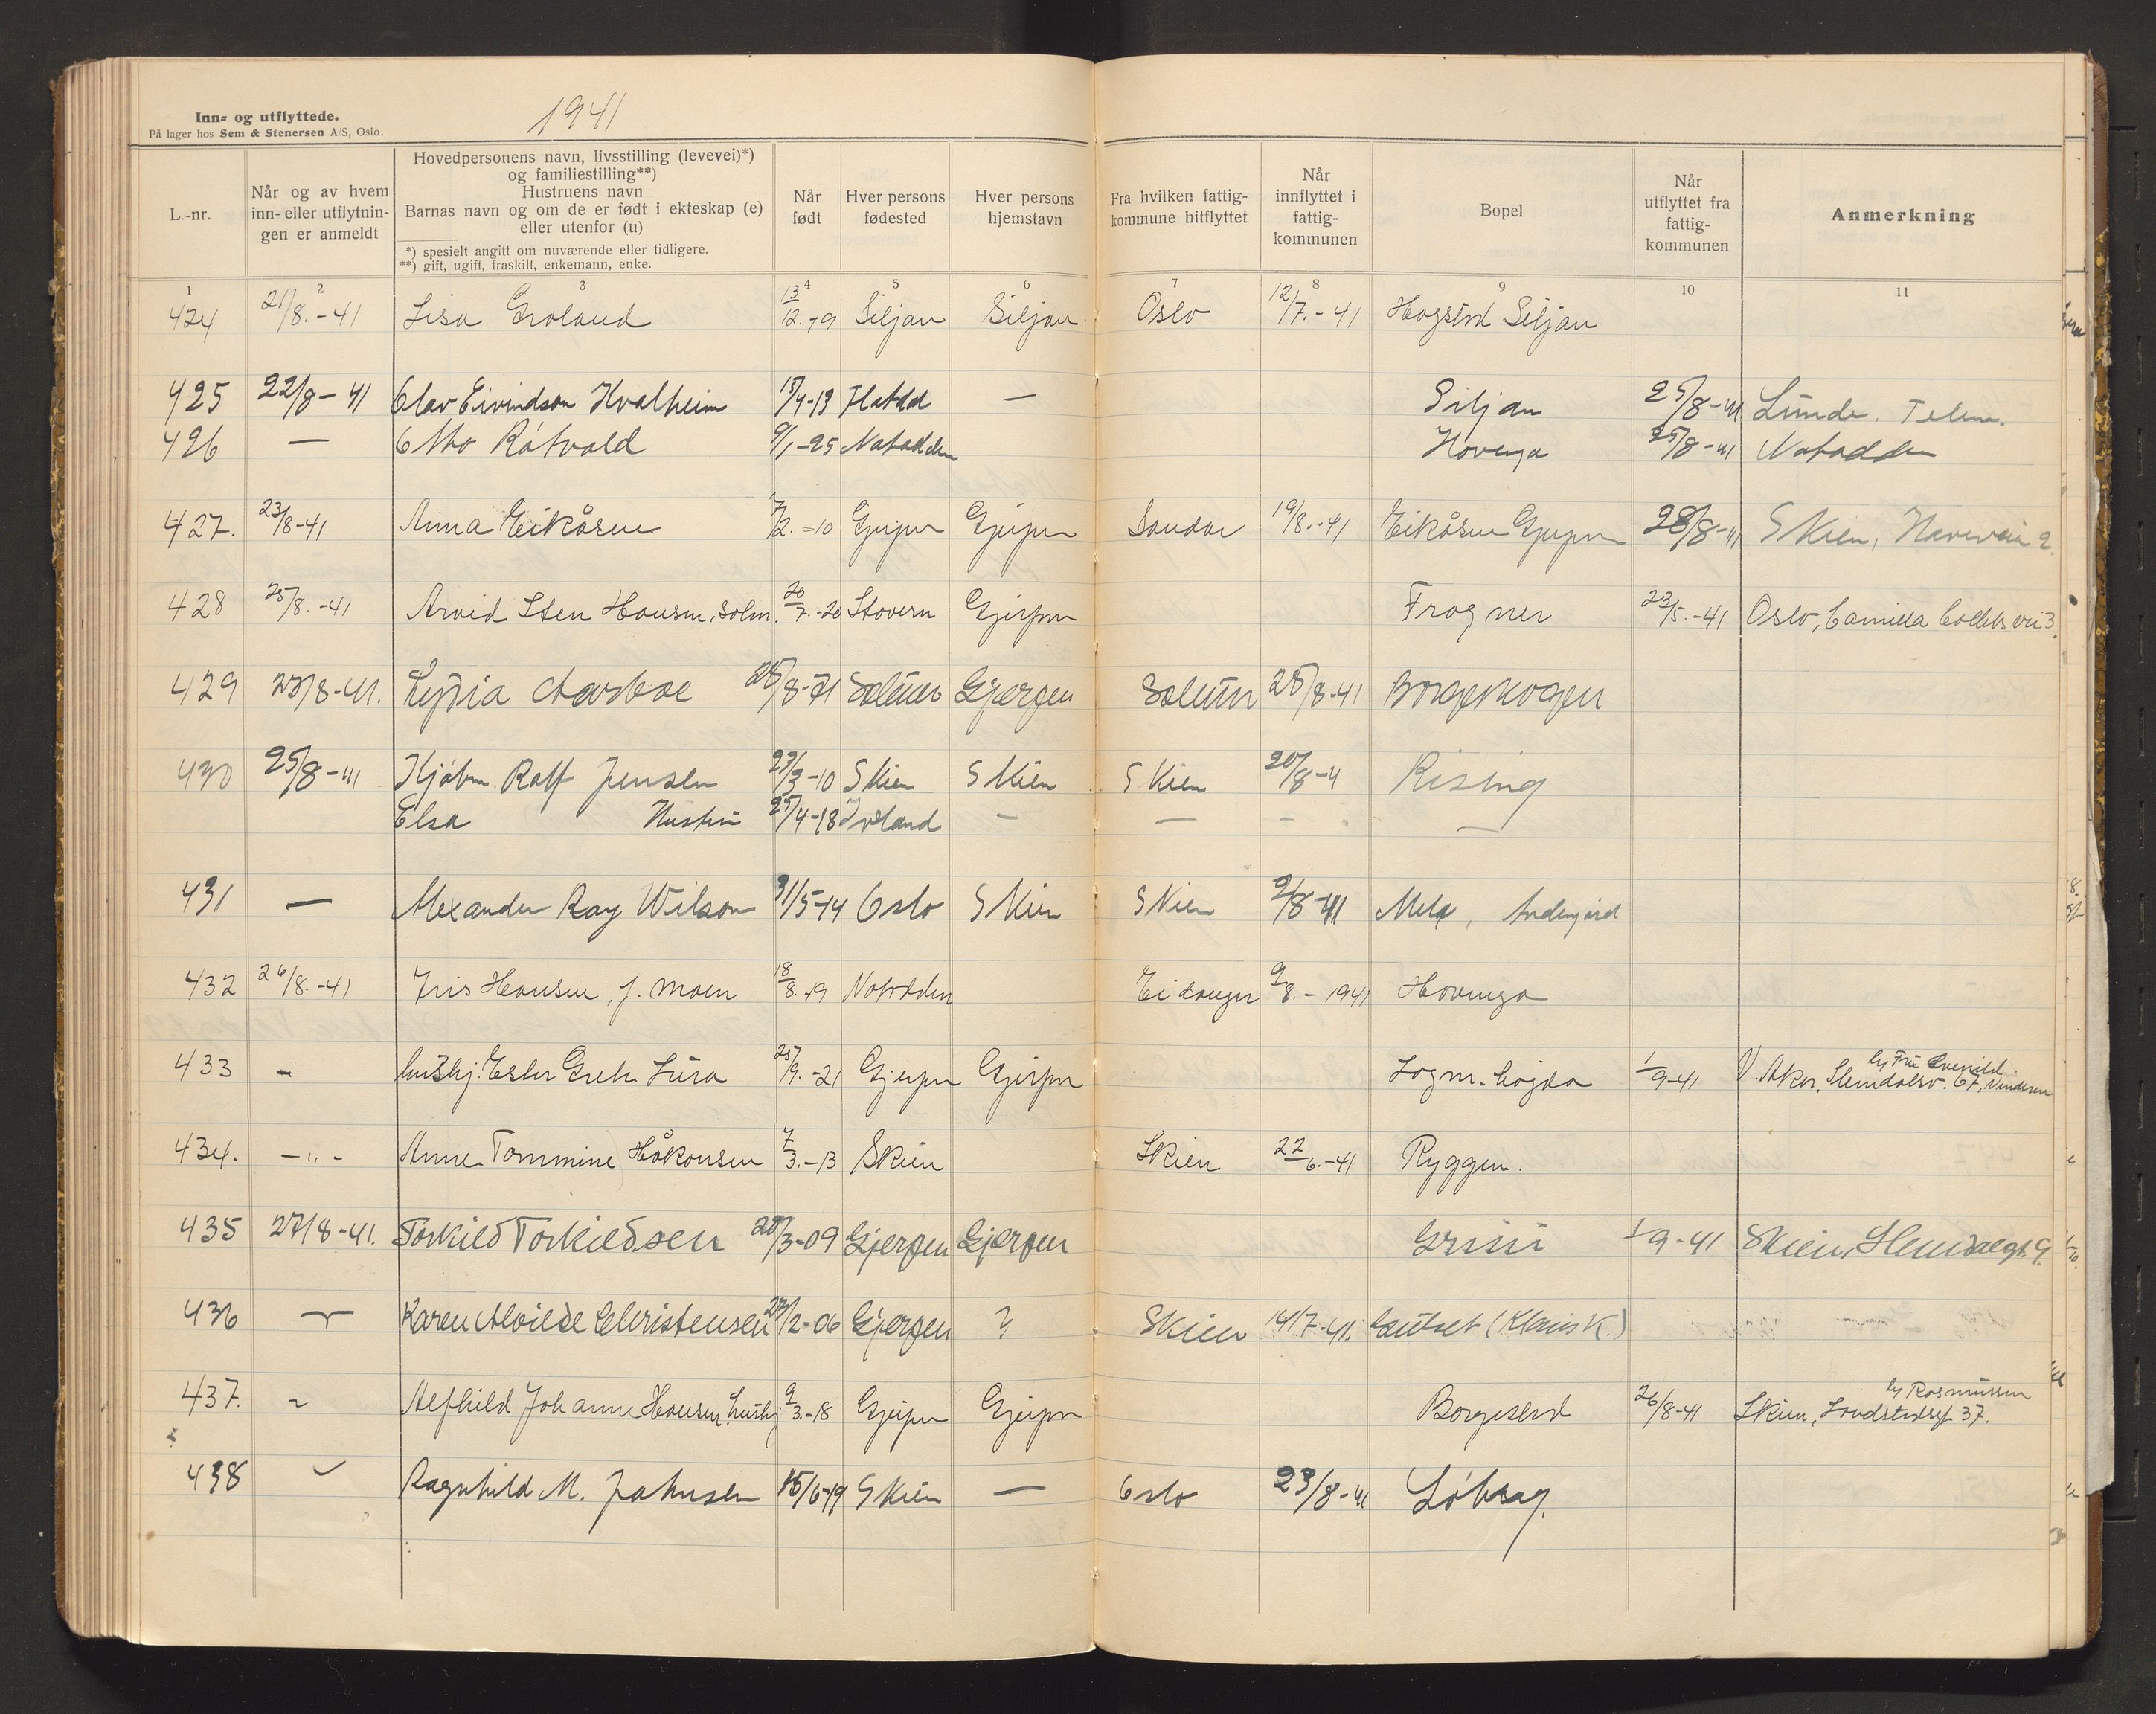 Inn- og utflyttede.
På lager hos Sem & Stenersen A/S, Oslo.
1941
L.-nr.
Når og av hvem inn- eller utflytnin- gen er anmeldt
Hovedpersonens navn, livsstilling (levevei)*)
og familiestilling**)
Hustruens navn
Barnas navn og om de er født i ekteskap (e)
eller utenfor (u)
*) spesielt angitt om nuværende eller tidligere.
**) gift, ugift, fraskilt, enkemann, enke.
Når født
Hver persons fødested
Hver persons hjemstavn
Fra hvilken fattig- kommune hitflyttet
Når innflyttet i fattig- kommunen
Bopel
Når utflyttet fra fattig- kommunen
Anmerkning
1 2 3 4 5 6 7 8 9 10 11
424 21/8.-41 Lisa Groland 13/12.-19 Siljan Siljan Oslo 12/7.-41 Hogstad Siljan
425 22/8-41 Olav Eivindson Kvalheim 15/4-13 Siljan 25/8-41 Lunde. Telem.
426 — Otto Råtvald 9/1-25 Notodden Hovenga 25/8-41 Notodden
427. 23/8-41 Anna Eikåsen 7/2.-10 Gjerpen Gjerpen Sandar 19/8.-41 Eikåsen Gjerpen 28/8-41 Skien,
428 25/8.-41 Arvid Sten Hansen, 20/7.-20 Stavern Gjerpen Frogner 23/5.-41 Oslo, Camilla Colletts vei 3.
429 25/8-41. Lydia Aarsboe 25/8-71 Solum Gjerpen Solum 25/8-41 Borgeskogen
430 25/8-41 Kjøbm. Rolf Jensen 27/3-10 Skien Skien Skien 20/8-41 Rising
Elsa Hustru 25/4-18 Iveland — — — —
431 — Alexander Ray Wilson 31/5-14 Oslo Skien Skien 9/8-41 Mela,
432 26/8.-41 Iris Hansen, f. Moen 18/8.-19 Notodden Eidanger 9/8.-1941 Hovenga
433 - hushj. Ester Grete Lura 25/9.-21 Gjerpen Gjerpen Sogm. høgda 1/9-41 V. Aker, Slemdalsv. 67, Vinderen
434. -"- Anne Tommine Håkonsen 7/3.-13 Skien Skien 22/6.-41 Ryggen.
435 27/8-41. Torkild Torkildsen 28/3-09 Gjerpen Gjerpen Grini 1/9-41 Skien, Slemdalgt. 9.
436 — Karen Alvilde Christensen 27/2-06 Gjerpen ? Skien 14/7-41. (Klaus K.)
437. - Alfhild Johanne Hansen, hushj 9/3.-18 Gjerpen Gjerpen Borgestad 26/8-41 Skien, 37. hs Rasmussen
438 Ragnhild M. Johnsen 15/6-19 Skien — Oslo 23/8-41